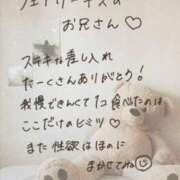 フェアリーキスの
お兄さん♡
ステキな差し入れ
たーくさんありがとう!
我慢できんくてタコ食べたのは
ここだけのヒミツ♡
また性欲はほのに
まかせてね☺